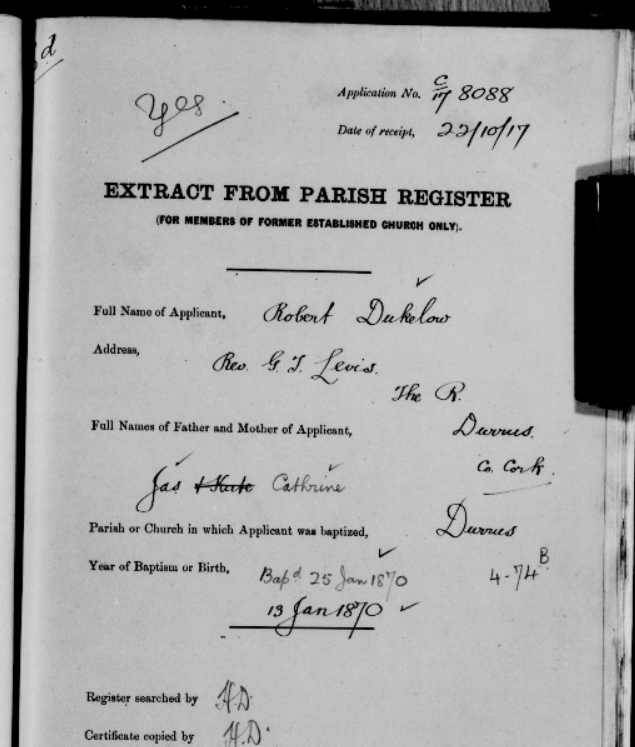 d
Yes
Application No. C/17 8088
Date of receipt, 22/10/17
EXTRACT FROM PARISH REGISTER
(FOR MEMBERS OF FORMER ESTABLISHED CHURCH ONLY).
Full Name of Applicant, Robert Dukelow
Address,
Rev. G. T. Levis.
The R.
Full Names of Father and Mother of Applicant, Durrus.
Co. Cork.
Jas + Kate Cathrine
Parish or Church in which Applicant was baptized, Durrus
Year of Baptism or Birth, Bapd 25 Jan 1870 4-74 B
13 Jan 1870
Register searched by H.D.
Certificate copied by H.D.